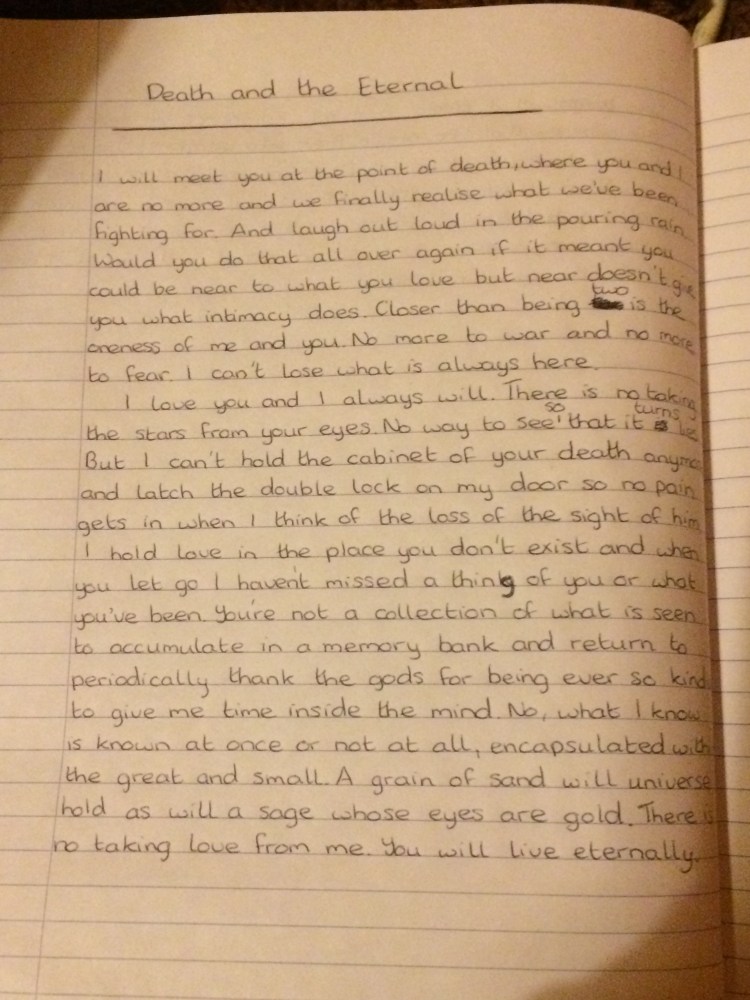 Death and the Eternal
I will meet you at the point of death, where you and I
are no more and we finally realise what we've been
fighting for. And laugh out loud in the pouring rain.
Would you do that all over again if it meant you
could be near to what you love but near doesn't give
you what intimacy does. Closer than being two is the
oneness of me and you. No more to war and no more
to fear. I can't lose what is always here.
I love you and I always will. There is no taking
the stars from your eyes. No way to see so that it turns
But I can't hold the cabinet of your death anymore
and latch the double lock on my door so no pain
gets in when I think of the loss of the sight of him.
I hold love in the place you don't exist and when
you let go I haven't missed a thing of you or what
you've been. You're not a collection of what is seen
to accumulate in a memory bank and return to
periodically thank the gods for being ever so kind
to give me time inside the mind. No, what I know
is known at once or not at all, encapsulated with
the great and small. A grain of sand will universe
hold as will a sage whose eyes are gold. There is
no taking love from me. You will live eternally.